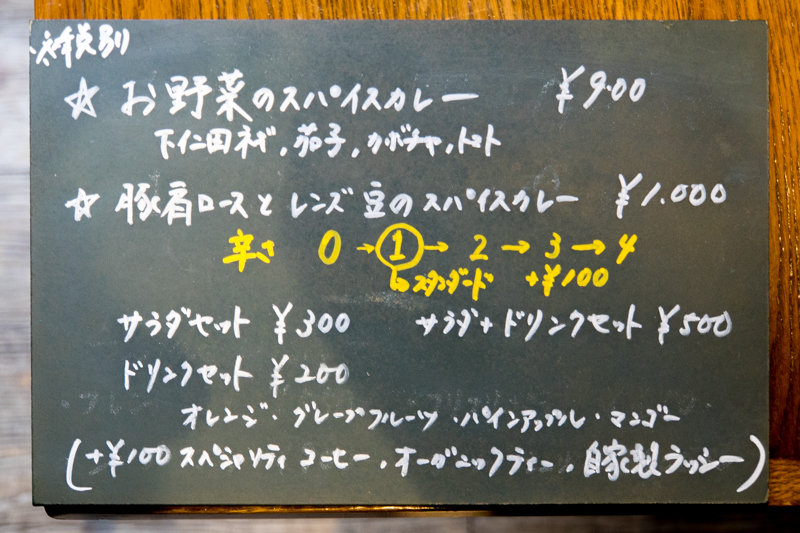 税別
☆ お野菜のスパイスカレー ¥900
下仁田ネギ, 茄子, カボチャ, トマト
☆ 豚肩ロースとレンズ豆のスパイスカレー ¥1.000
辛さ 0→①→2→3→4
スタンダード +¥100
サラダセット ¥300 サラダ+ドリンクセット ¥500
ドリンクセット ¥200
オレンジ・グレープフルーツ・パインアップル・マンゴー
(+¥100 スペシャリティコーヒー, オーガニックティー, 自家製ラッシー)